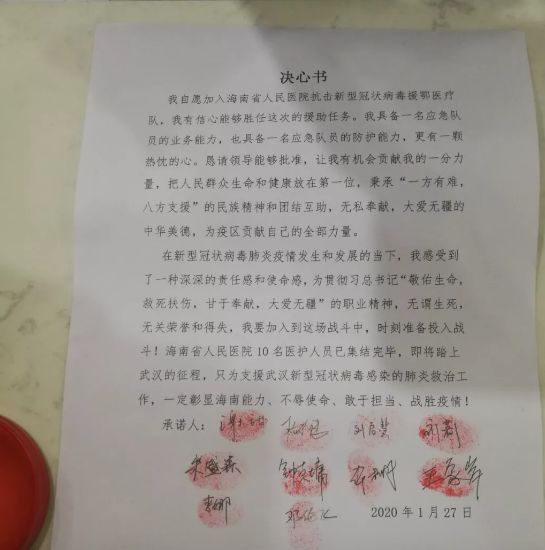 决心书
我自愿加入海南省人民医院抗击新型冠状病毒援鄂医疗
队，我有信心能够胜任这次的援助任务。我具备一名应急队
员的业务能力，也具备一名应急队员的防护能力、更有一颗
热忱的心。恳请领导能够批准，让我有机会贡献我的一分力
量，把人民群众生命和健康放在第一位，秉承“一方有难，
八方支援”的民族精神和团结互助，无私奉献，大爱无疆的
中华美德，为疫区贡献自己的全部力量。
在新型冠状病毒肺炎疫情发生和发展的当下，我感受到
了一种深深的责任感和使命感，为贯彻习总书记“敬佑生命，
救死扶伤，甘于奉献，大爱无疆”的职业精神，无谓生死，
无关荣誉和得失，我要加入到这场战斗中，时刻准备投入战
斗！海南省人民医院 10 名医护人员已集结完毕，即将踏上
武汉的征程，只为支援武汉新型冠状病毒感染的肺炎救治工
作，一定彰显海南能力、不辱使命、敢于担当、战胜疫情！
承诺人：
李娜
2020 年 1 月 27 日